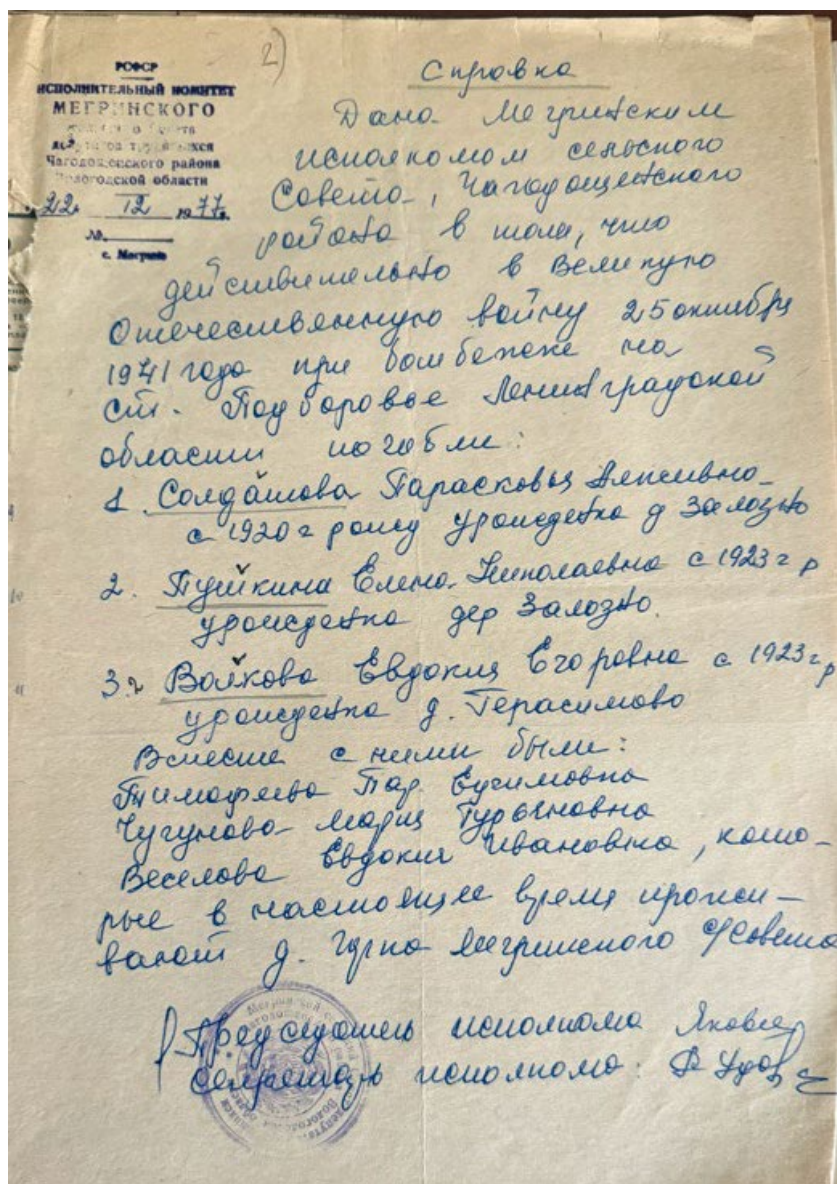 2)
РСФСР
ИСПОЛНИТЕЛЬНЫЙ КОМИТЕТ
МЕГРИНСКОГО
Чагодощенского района
Вологодской области
22 12 1977г.
№
с. Мегрино
Справка
Дана Мегринским
исполкомом сельского
Совета, Чагодощенского
района в том, что
действительно в Великую
Отечественную войну 25 октября
1941 года при бомбежке на
ст. Подборовье Ленинградской
области погибли:
1. Солдатова Парасковья
с 1920 г рожд уроженка д Залозно
2. Пушкина Елена Николаевна с 1923 г р
уроженка дер Залозно.
3. Волкова Евдокия Егоровна с 1923 г р
уроженка д. Герасимово
Вместе с ними были:
Тимофеева Пар.
Чугунова Мария Гурьяновна
Веселова Евдокия Ивановна, кото-
рые в настоящее время прожи-
вают д. Гурно Мегринского с/Совета
Председатель исполкома
Секретарь исполкома: